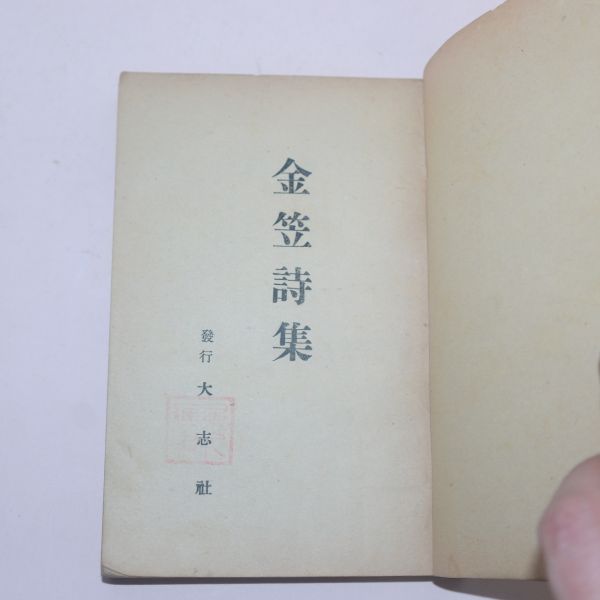 金笠詩集
發行 大志社